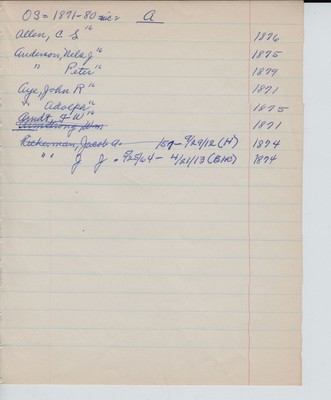 03 = 1871-80 inc. A
Allen, C S 16 1876
Anderson, Nels J 16 1875
" Peter 16 1879
Aye, John R 16 1871
" Adolph 16 1875
Arndt, F W 16 1871
Ackerman, Jacob A. - 9/29/12 (H) 1874
" " J J - 9/25/64 - 4/21/13 (BHS) 1874